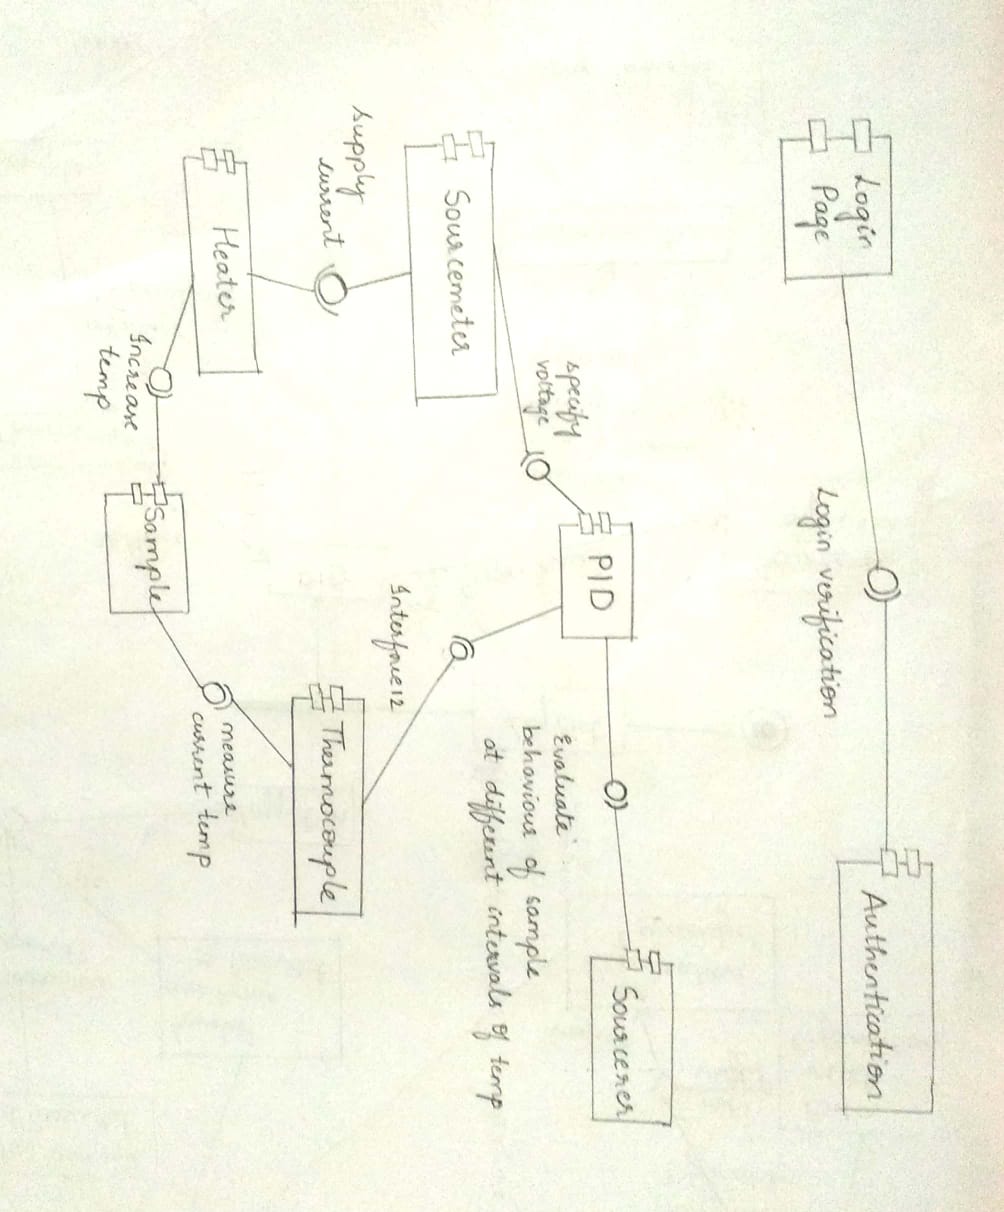 Login
Page
Login verification
Authentication
Sourcemeter
specify
voltage
PID
Evaluate
behaviour of sample
at different intervals of temp
Sourcerer
supply
current
Heater
Interface12
Thermocouple
Increase
temp
Sample
measure
current temp